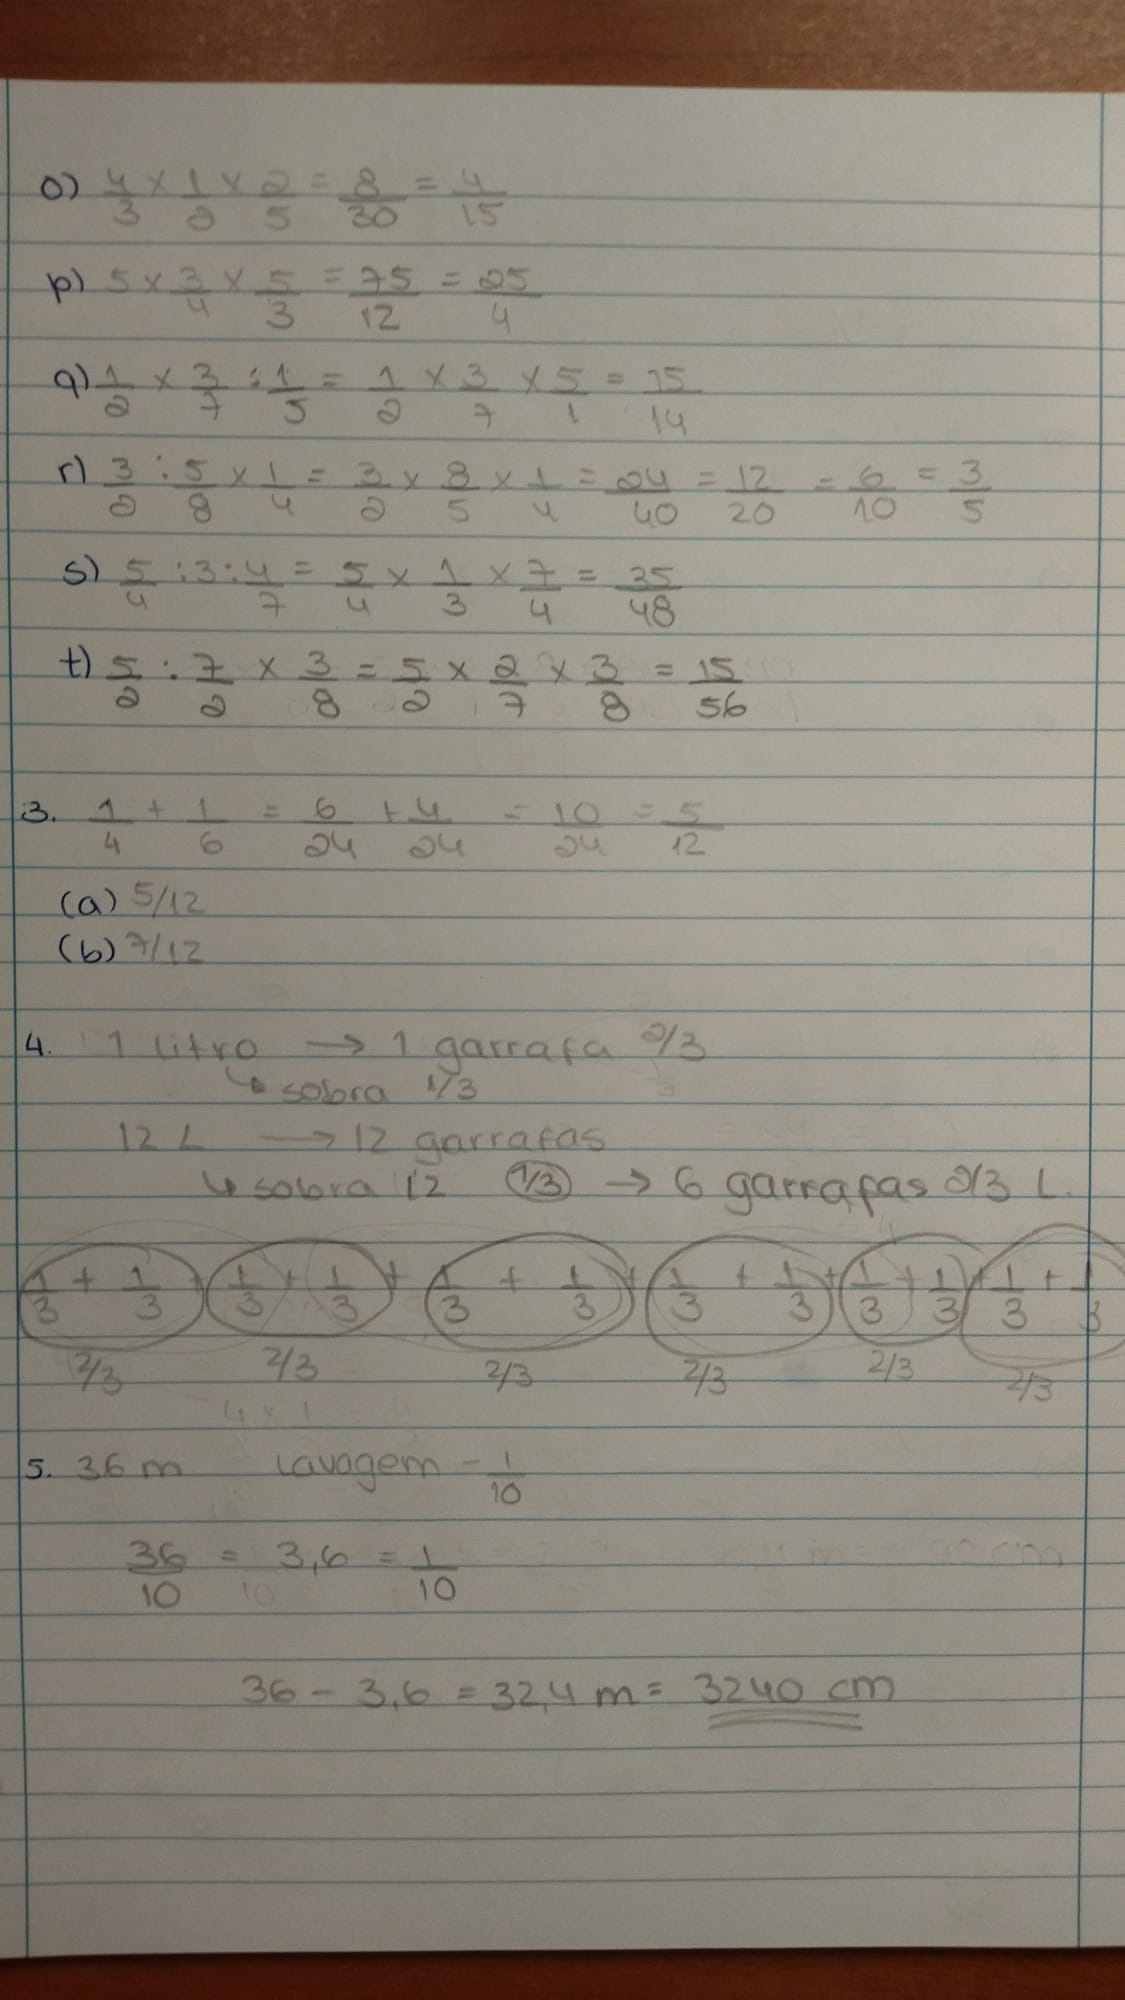 o) 4/3 × 1/2 × 2/5 = 8/30 = 4/15
p) 5 × 3/4 × 5/3 = 75/12 = 25/4
q) 1/2 × 3/7 : 1/5 = 1/2 × 3/7 × 5/1 = 15/14
r) 3/2 : 5/8 × 1/4 = 3/2 × 8/5 × 1/4 = 24/40 = 12/20 = 6/10 = 3/5
s) 5/4 : 3 : 4/7 = 5/4 × 1/3 × 7/4 = 35/48
t) 5/2 : 7/2 × 3/8 = 5/2 × 2/7 × 3/8 = 15/56
3. 1/4 + 1/6 = 6/24 + 4/24 = 10/24 = 5/12
(a) 5/12
(b) 7/12
4. 1 litro → 1 garrafa 2/3
↳ sobra 1/3
12 L → 12 garrafas
↳ sobra 12 1/3 → 6 garrafas 2/3 L.
1/3 + 1/3 + 1/3 + 1/3 + 1/3 + 1/3 + 1/3 + 1/3 + 1/3 + 1/3 + 1/3 + 1/3
2/3 2/3 2/3 2/3 2/3 2/3
5. 36 m lavagem - 1/10
36/10 = 3,6 = 1/10
36 - 3,6 = 32,4 m = 3240 cm